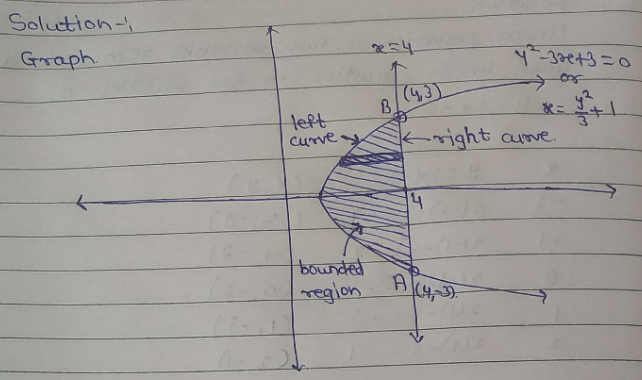 Solution-:
Graph.
x=4
y²-3x+3=0
or
x= y²/3 +1
B (4,3)
left
curve
right curve.
4
bounded
region
A (4,-3).